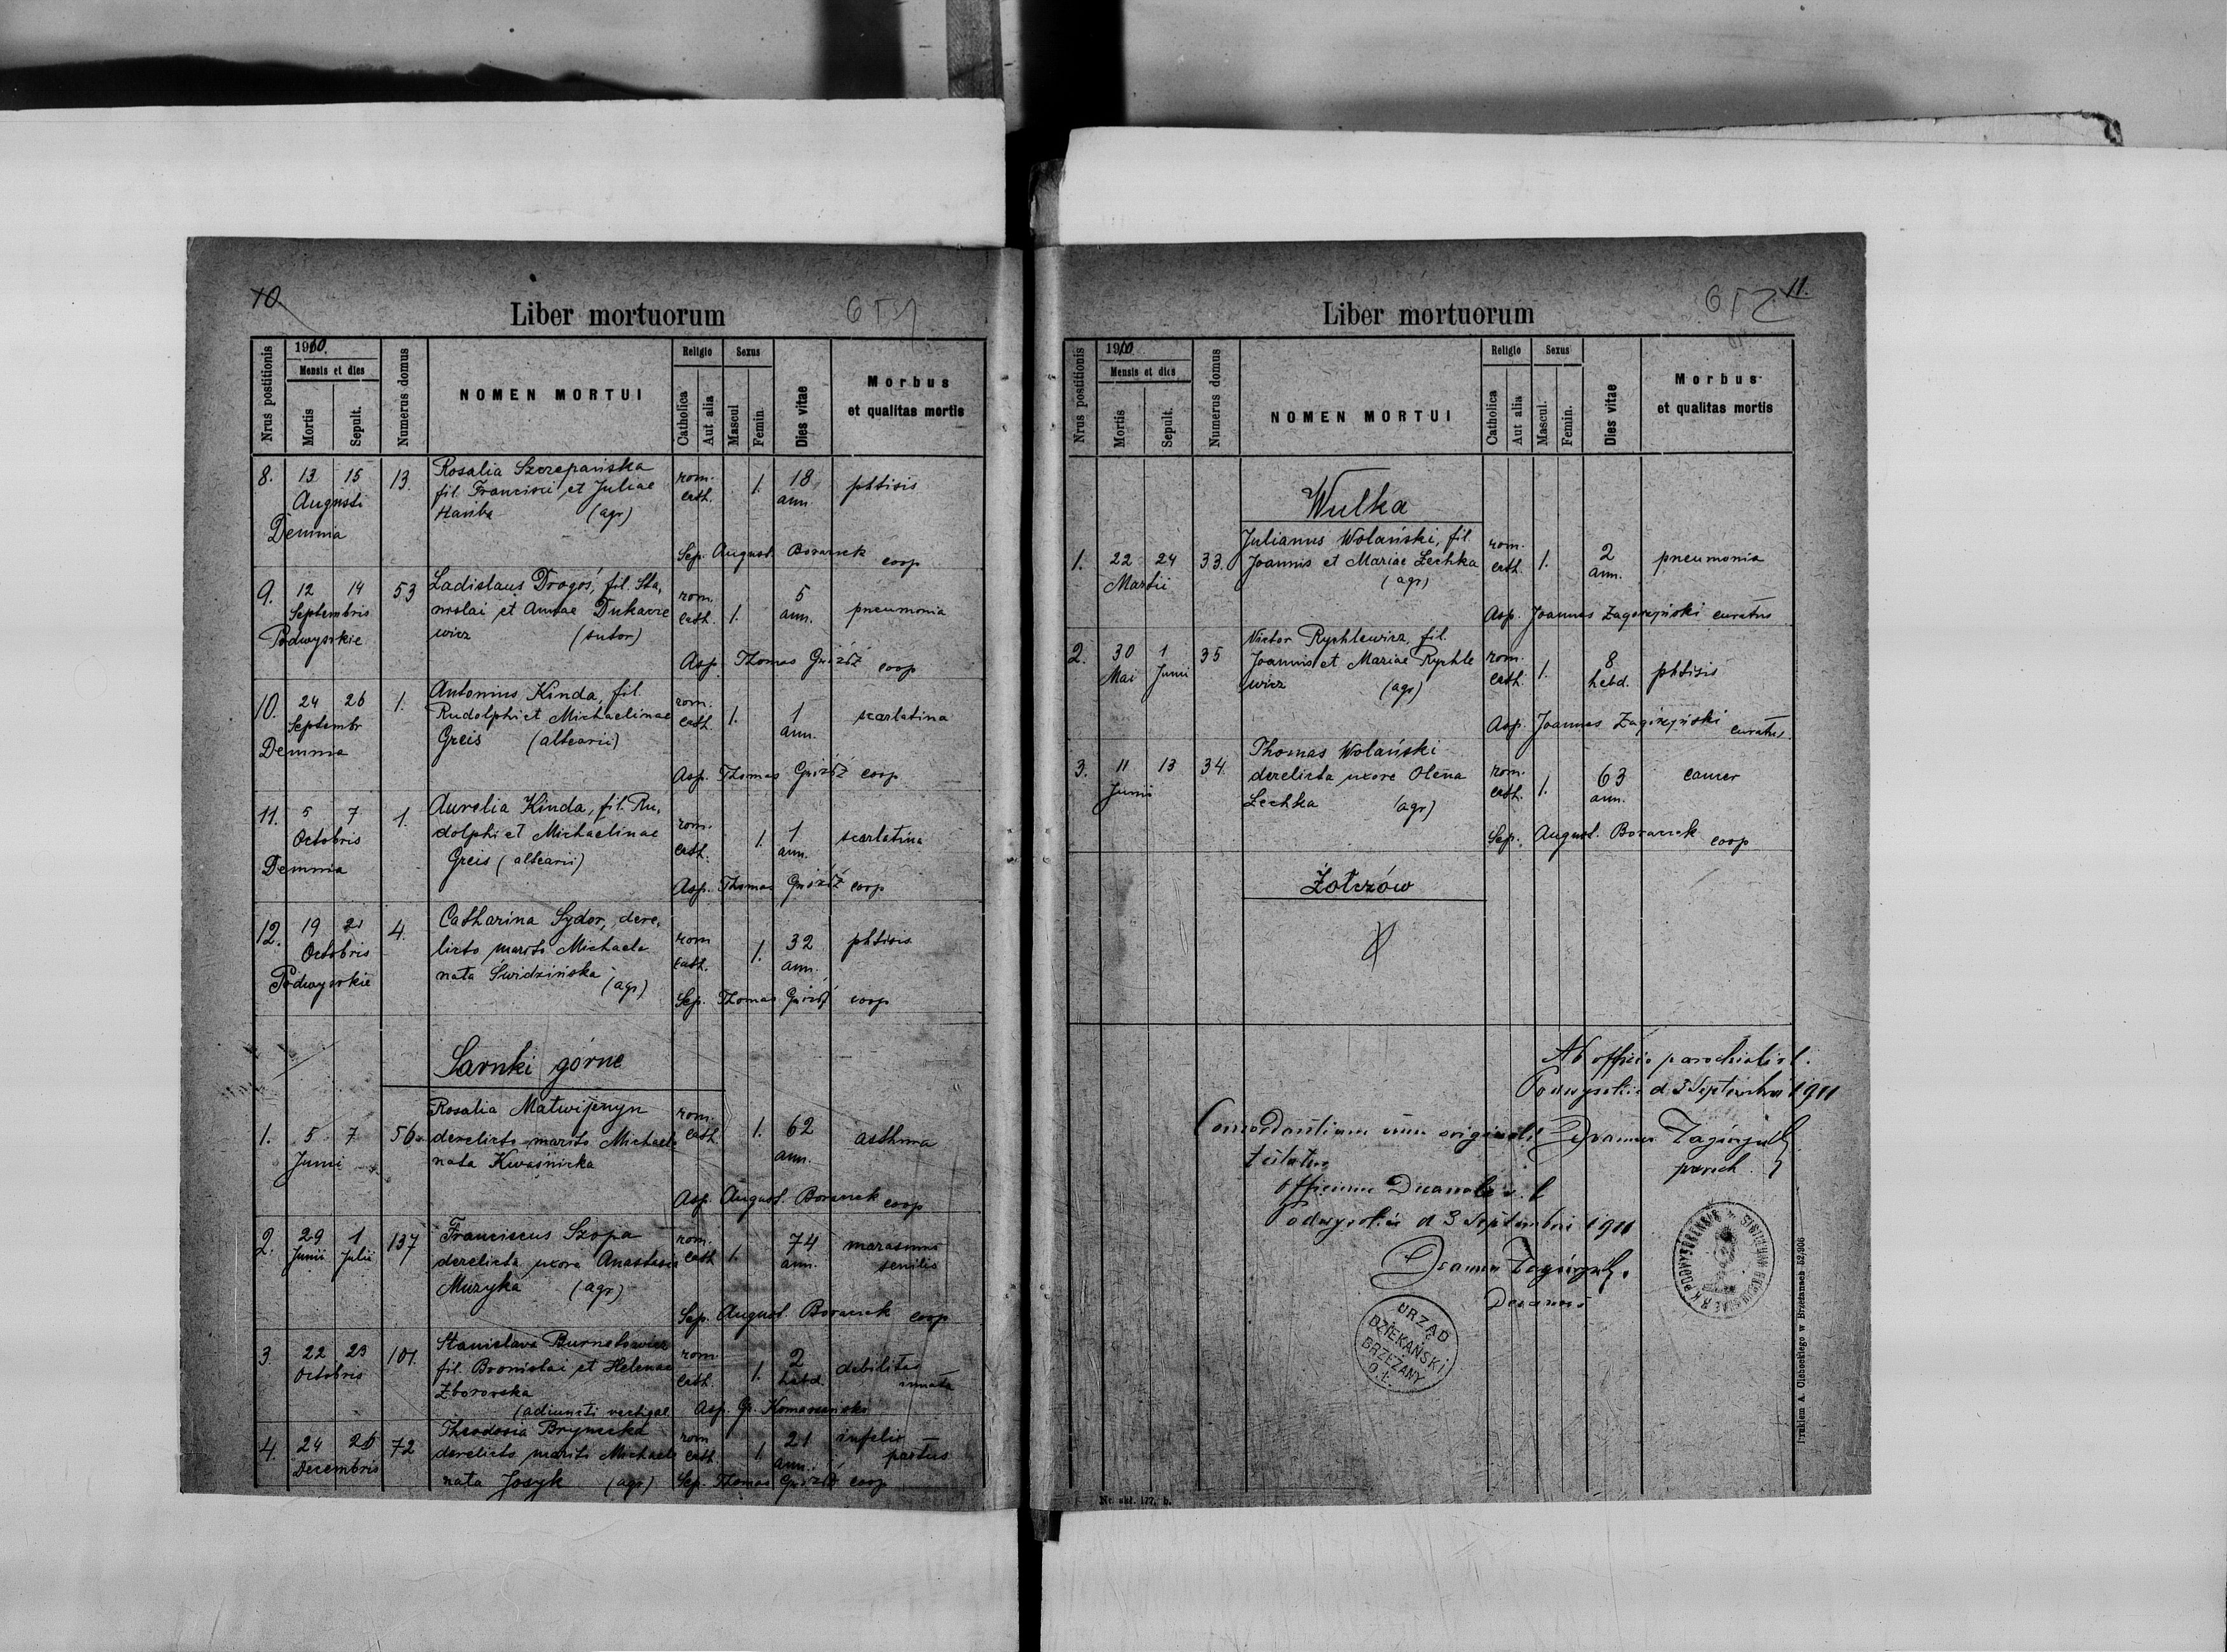 10.
Liber mortuorum
Nrus postitionis
1910.
Mensis et dies
Mortis
Sepult.
Numerus domus
NOMEN MORTUI
Religio
Catholica
Aut alia
Sexus
Mascul
Femin.
Dies vitae
Morbus
et qualitas mortis
8. 13 15 13. Rosalia Szczepańska rom. 1. 18 phtisis
Augusti fil. Francisci et Juliae cath. ann.
(agr)
Demnia
Sep. August. Boraczek coop
9. 12 14 53 Ladislaus Drogoś, fil. Sta, rom. 5
Septembris nislai et Annae Dukacie cath. 1. ann. pneumonia
Podwysokie wicz (sutor)
Asp Thomas Gwóźdź coop
10. 24 26 1. Antonius Kinda, fil. rom.
Septembr Rudolphi et Michaelinae cath. 1. 1 scarlatina
Demnia Greis (altearii) ann.
Asp. Thomas Gwóźdź coop
11. 5 7 1. Aurelia Kinda, fil. Ru, rom. 1. 1 scarlatina
Octobris dolphi et Michaelinae cath. ann.
Demnia Greis (altearii)
Asp. Thomas Gwóźdź coop
12. 19 21 4. Catharina Sydor, dere, rom 1. 32 phtisis
Octobris licto marito Michaele cath. ann.
Podwysokie nata Świdzińska (agr)
Sep. Thomas Gwóźdź coop
Sarnki górne
Rosalia Matwijczyn rom.
1. 5 7 56 derelicto marito Michaele cath. 1. 62 asthma
Junii nata Kwaśnicka ann.
Asp. August. Boraczek coop
2. 29 1 137 Franciscus Szopa rom. 74 marasmus
Junii Julii derelicta uxore Anastasia cath 1. ann. senilis
Muzyka (agr)
Sep. August. Boraczek coop
3. 22 23 101. Stanislava rom 2 debilitas
Octobris fil. Bronislai et Helenae cath. 1. hebd. innata
Zborowska
(adiuncti vectigal Asp. Gr.
4. 24 26 72 Theodosia rom 1. 21 infelix
Decembris derelicto marito Michaele cath ann. partus
nata Josyk (agr) Sep. Thomas Gwóźdź coop
11.
Liber mortuorum
Nrus postitionis
1910
Mensis et dies
Mortis
Sepult.
Numerus domus
NOMEN MORTUI
Religio
Catholica
Aut alia
Sexus
Mascul.
Femin.
Dies vitae
Morbus
et qualitas mortis
Wulka
Julianus Wolański, fil. rom.
1. 22 24 33. Joannis et Mariae Lechka cath. 1. 2 pneumonia
Martii (agr) ann.
Asp. Joannes Zagórzyński curatus
Victor Rychlewicz, fil.
2. 30 1 35 Joannis et Mariae Rychle rom. 1. 8 phtisis
Mai Junii wicz (agr) cath. hebd.
Asp. Joannes Zagórzyński curatus.
Thomas Wolański
3. 11 13 34. derelicta uxore Olena rom. 1. 63 cancer
Junii Lechka (agr) cath. ann.
Sep. August. Boraczek coop
Żołczów
Ab officio parochiali r. l.
Podwysokie d 3 Septembri 1911
paroch.
Podwysokie d 3 Septembri 1911
Decanus
URZĄD
DZIEKAŃSKI
BRZEŻANY
O. Ł.
Nr. skł. 177. b.
Drukiem A. Cichockiego w Brzeżanach 52,906